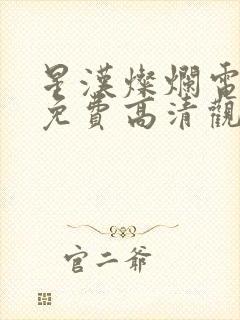 星漢燦爛電
免費高清觀
官二爺